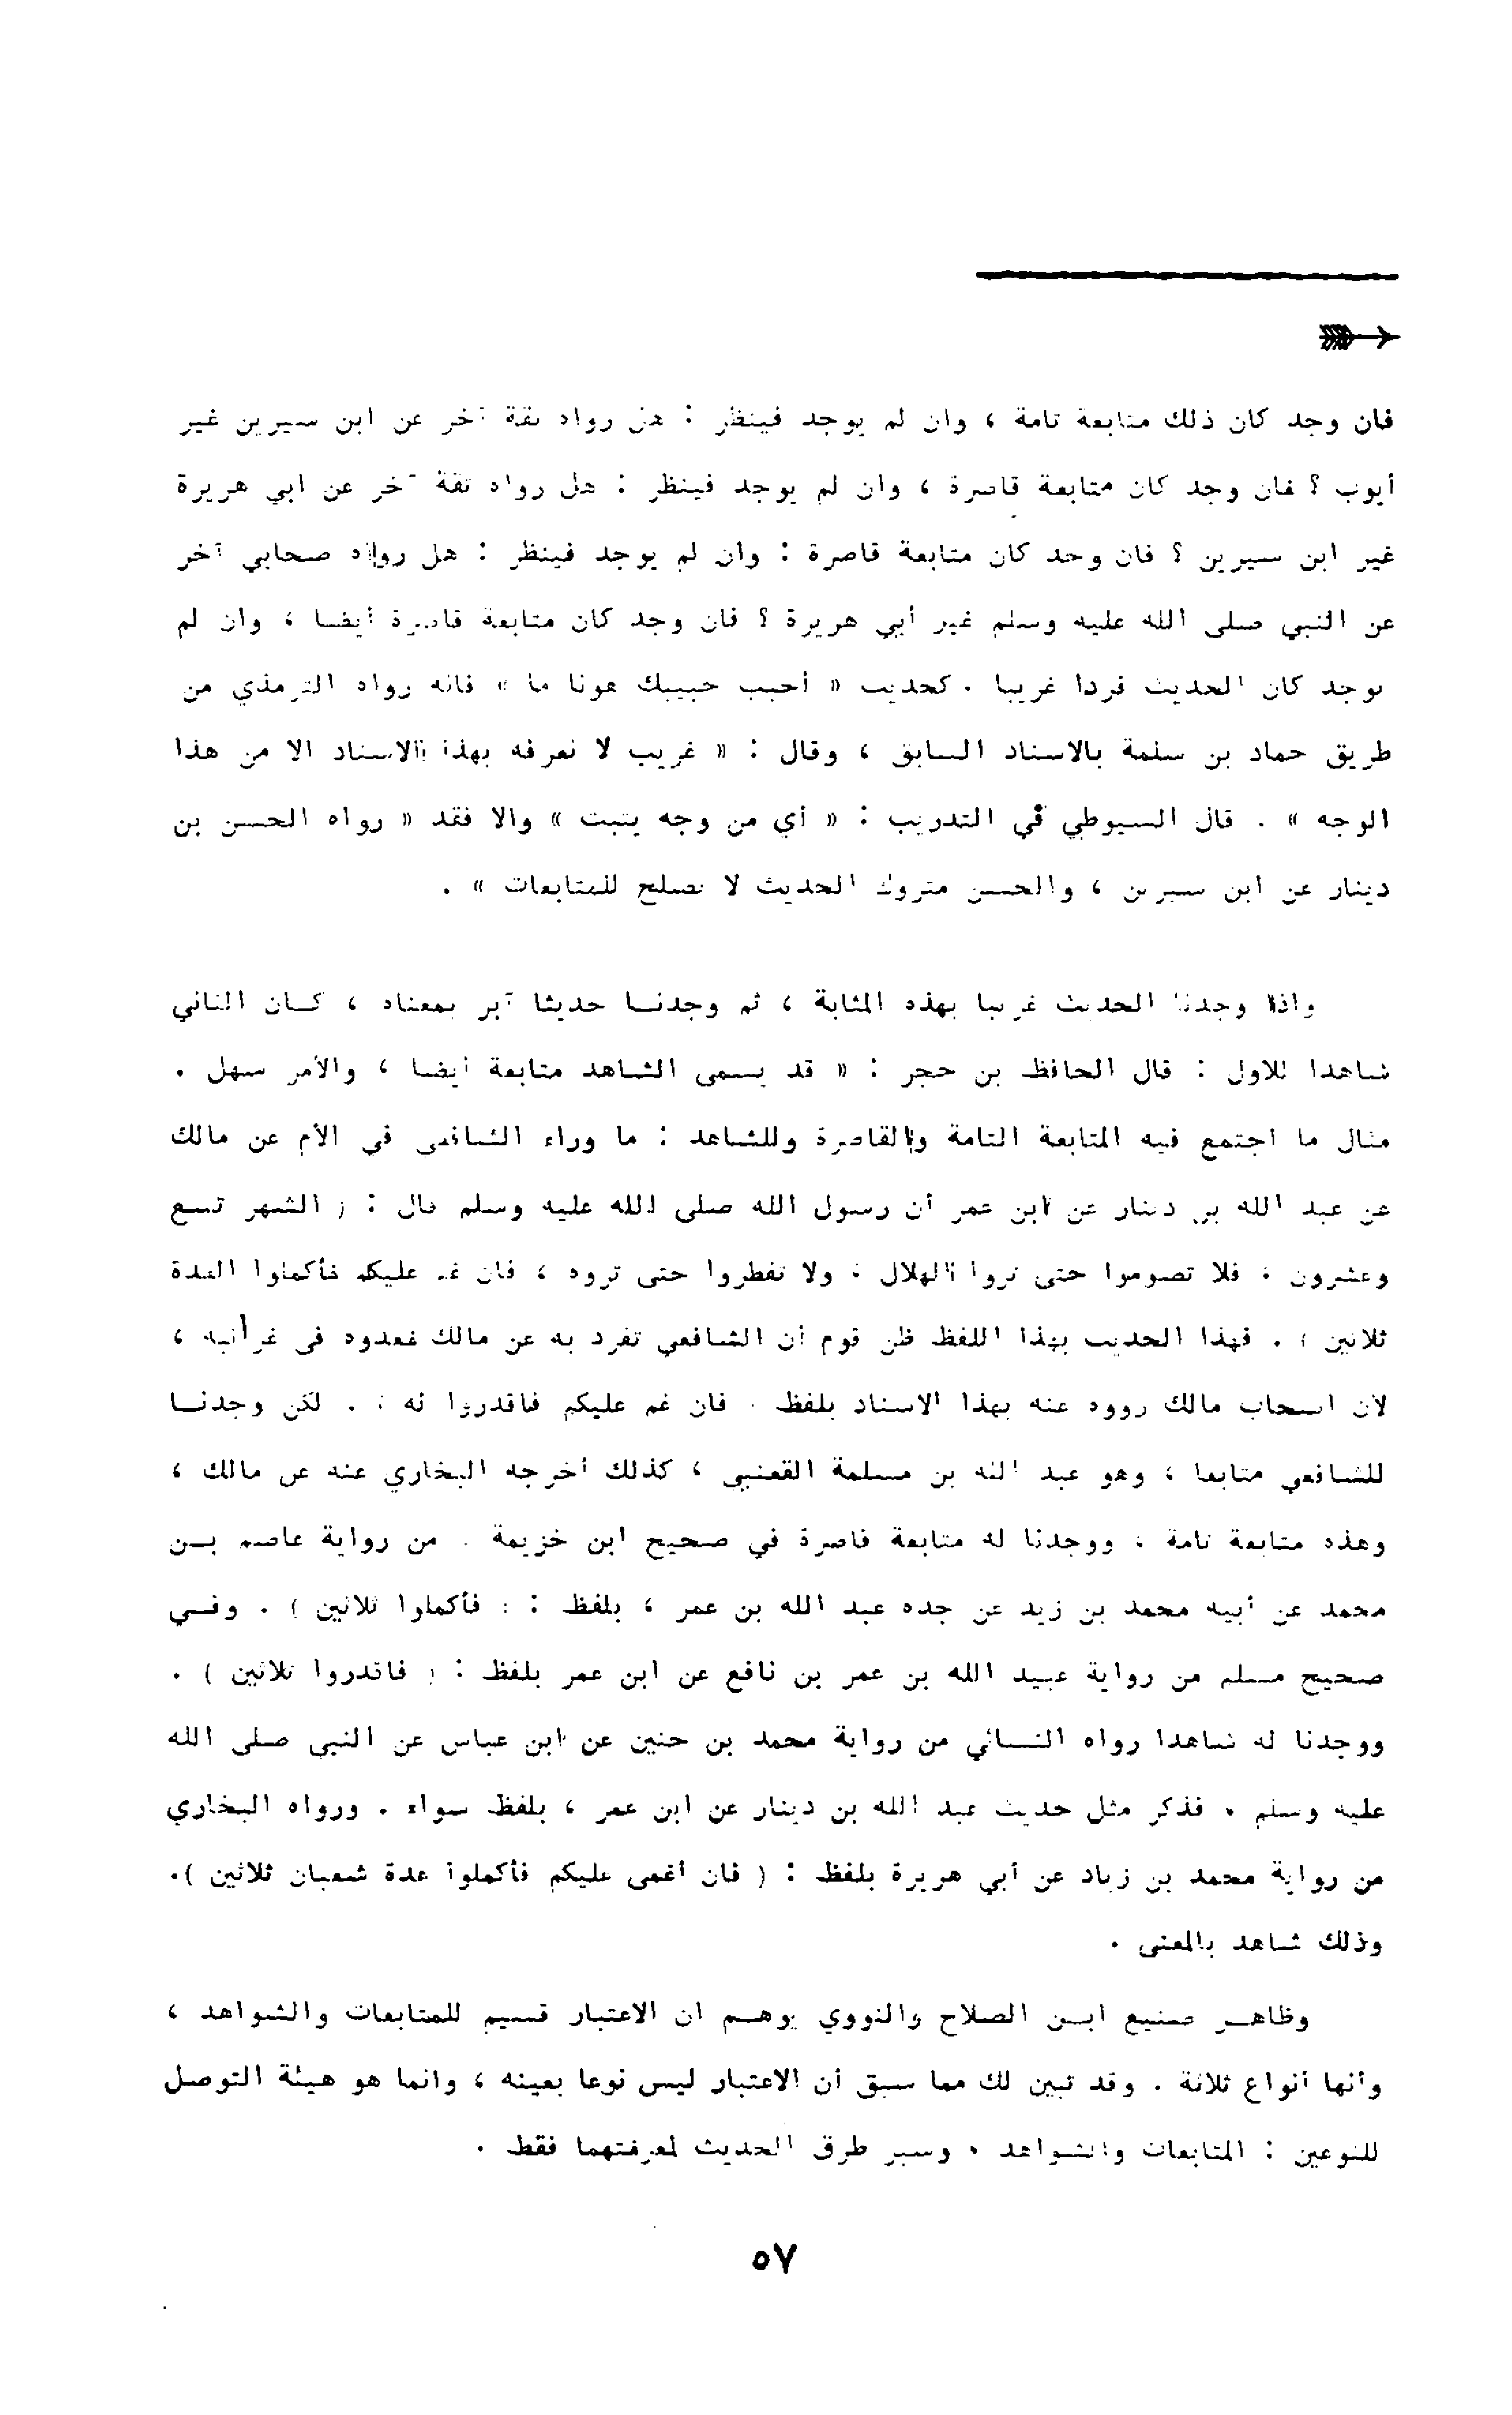 فان وجد كان ذلك متابعة تامة ، وان لم يوجد فينظر : هل رواه ثقة آخر عن ابن سيرين غير
أيوب ؟ فان وجد كان متابعة قاصرة ، وان لم يوجد فينظر : هل رواه ثقة آخر عن ابي هريرة
غير ابن سيرين ؟ فان وجد كان متابعة قاصرة : وان لم يوجد فينظر : هل رواه صحابي آخر
عن النبي صلى الله عليه وسلم غير أبي هريرة ؟ فان وجد كان متابعة قاصرة أيضا ، وان لم
يوجد كان الحديث فردا غريبا . كحديث « أحبب حبيبك هونا ما » فانه رواه الترمذي من
طريق حماد بن سلمة بالاسناد السابق ، وقال : « غريب لا نعرفه بهذا الاسناد الا من هذا
الوجه » . قال السيوطي في التدريب : « أي من وجه يثبت » والا فقد « رواه الحسن بن
دينار عن ابن سيرين ، والحسن متروك الحديث لا يصلح للمتابعات » .
واذا وجدنا الحديث غريبا بهذه المثابة ، ثم وجدنا حديثا آبر بمعناه ، كان الثاني
شاهدا للاول : قال الحافظ بن حجر : « قد يسمى الشاهد متابعة أيضا ، والأمر سهل .
مثال ما اجتمع فيه المتابعة التامة والقاصرة وللشاهد : ما وراء الشافعي في الأم عن مالك
عن عبد الله بن دينار عن ابن عمر أن رسول الله صلى الله عليه وسلم قال : ( الشهر تسع
وعشرون ، فلا تصوموا حتى تروا الهلال ، ولا تفطروا حتى تروه ، فان غم عليكم فأكملوا العدة
ثلاثين ) . فهذا الحديث بهذا اللفظ ظن قوم أن الشافعي تفرد به عن مالك فعدوه في غرأئبه ،
لأن اصحاب مالك رووه عنه بهذا الاسناد بلفظ فان غم عليكم فاقدروا له . لكن وجدنا
للشافعي متابعا ، وهو عبد الله بن مسلمة القعنبي ، كذلك أخرجه البخاري عنه عن مالك ،
وهذه متابعة تامة ، ووجدنا له متابعة قاصرة في صحيح ابن خزيمة . من رواية عاصم بن
محمد عن أبيه محمد بن زيد عن جده عبد الله بن عمر ، بلفظ : ( فأكملوا ثلاثين ) . وفي
صحيح مسلم من رواية عبيد الله بن عمر بن نافع عن ابن عمر بلفظ : ( فاقدروا ثلاثين ) .
ووجدنا له شاهدا رواه النسائي من رواية محمد بن حنين عن ابن عباس عن النبي صلى الله
عليه وسلم . فذكر مثل حديث عبد الله بن دينار عن ابن عمر ، بلفظ سواء . ورواه البخاري
من رواية محمد بن زياد عن أبي هريرة بلفظ : ( فان أغمى عليكم فأكملوا عدة شعبان ثلاثين ).
وذلك شاهد بالمعنى .
وظاهر صنيع ابن الصلاح والنووي يوهم ان الاعتبار قسيم للمتابعات والشواهد ،
وأنها أنواع ثلاثة . وقد تبين لك مما سبق أن الاعتبار ليس نوعا بعينه ، وانما هو هيئة التوصل
للنوعين : المتابعات والشواهد . وسبر طرق الحديث لمعرفتهما فقط .
٥٧